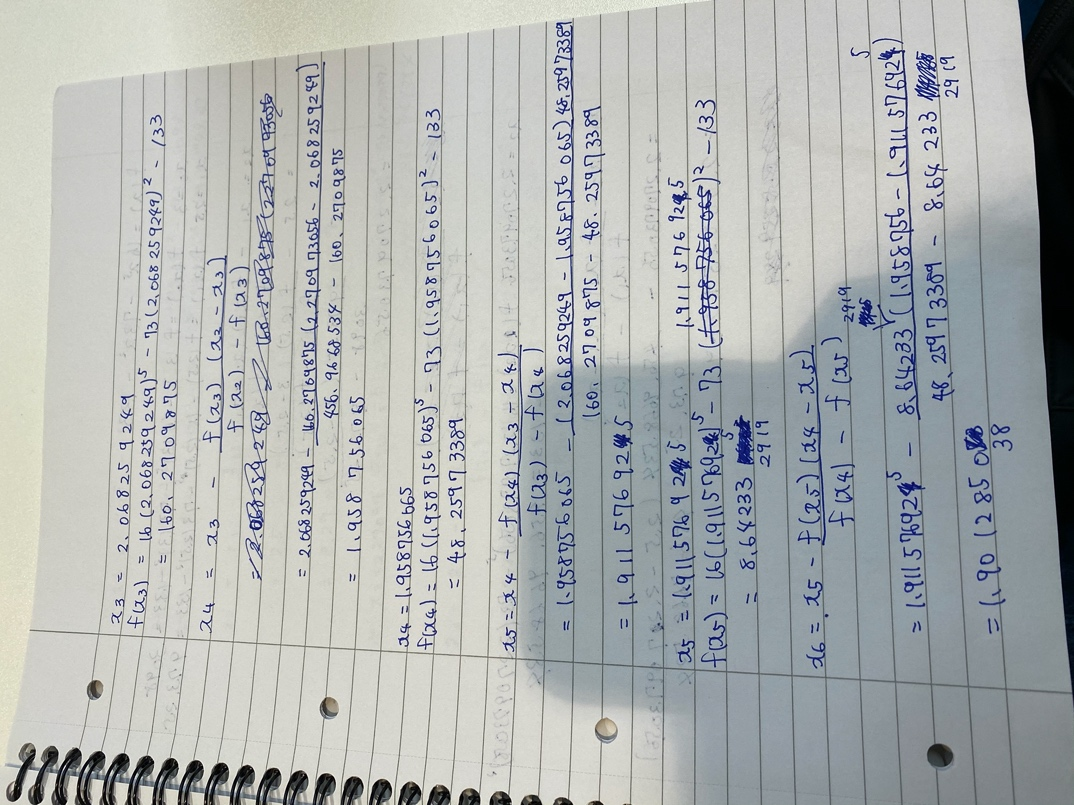 x3 = 2.068259249
f(x3) = 16(2.068259249)⁵ - 73(2.068259249)² - 133
= 160.2709875
x4 = x3 - f(x3)(x2 - x3)
f(x2) - f(x3)
= 2.068259249 - 160.2709875(2.270973056 - 2.068259249)
456.9668534 - 160.2709875
= 1.958756065
x4 = 1.958756065
f(x4) = 16(1.958756065)⁵ - 73(1.958756065)² - 133
= 48.25973389
x5 = x4 - f(x4)(x3 - x4)
f(x3) - f(x4)
= 1.958756065 - (2.068259249 - 1.958756065)48.25973389
160.2709875 - 48.25973389
= 1.911576925
x5 = 1.911576925
1.911576925
f(x5) = 16(1.911576925)⁵ - 73(1.958756065)² - 133
= 8.64233
2919
x6 = x5 - f(x5)(x4 - x5)
f(x4) - f(x5)
2919
= 1.911576925 - 8.64233(1.958756 - 1.911576925)
48.25973389 - 8.64233
2919
= 1.9012850
38